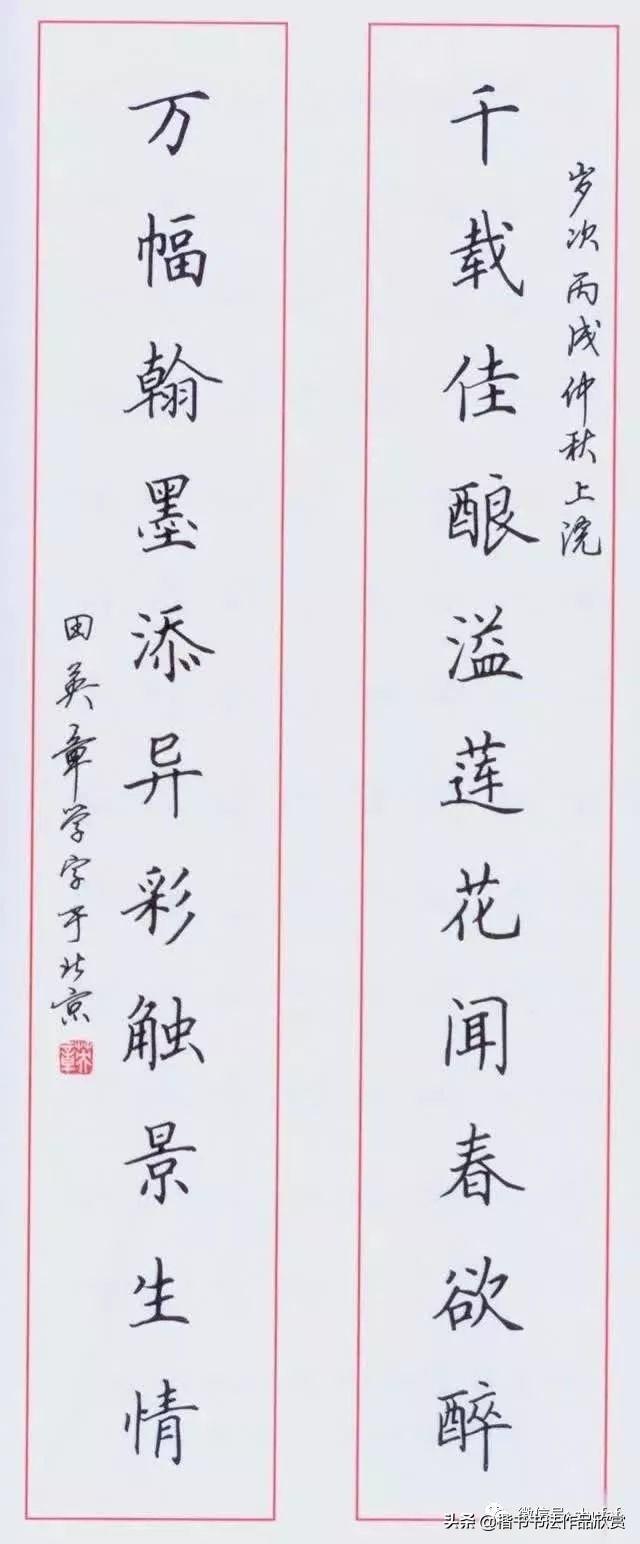 岁次丙戌仲秋上浣
千载佳酿溢莲花闻春欲醉
万幅翰墨添异彩触景生情
田英章学字于北京
英章
头条 @楷书书法作品欣赏